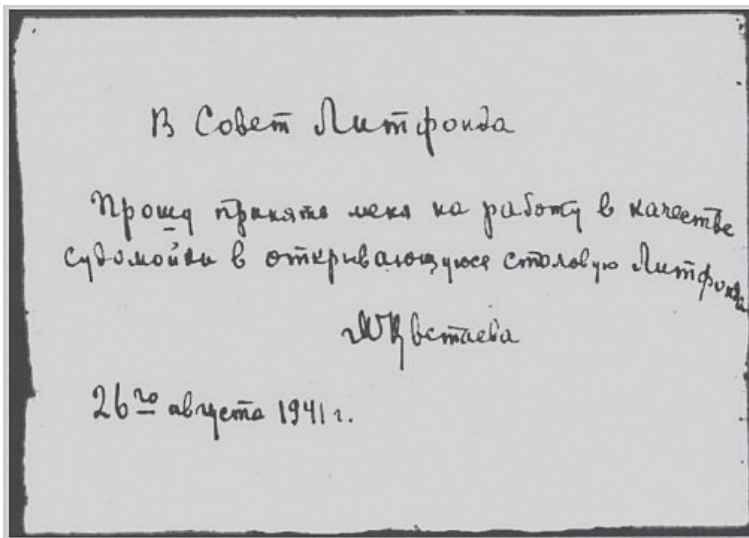 В Совет Литфонда
Прошу принять меня на работу в качестве
судомойки в открывающуюся столовую Литфонда
МЦветаева
26го августа 1941 г.